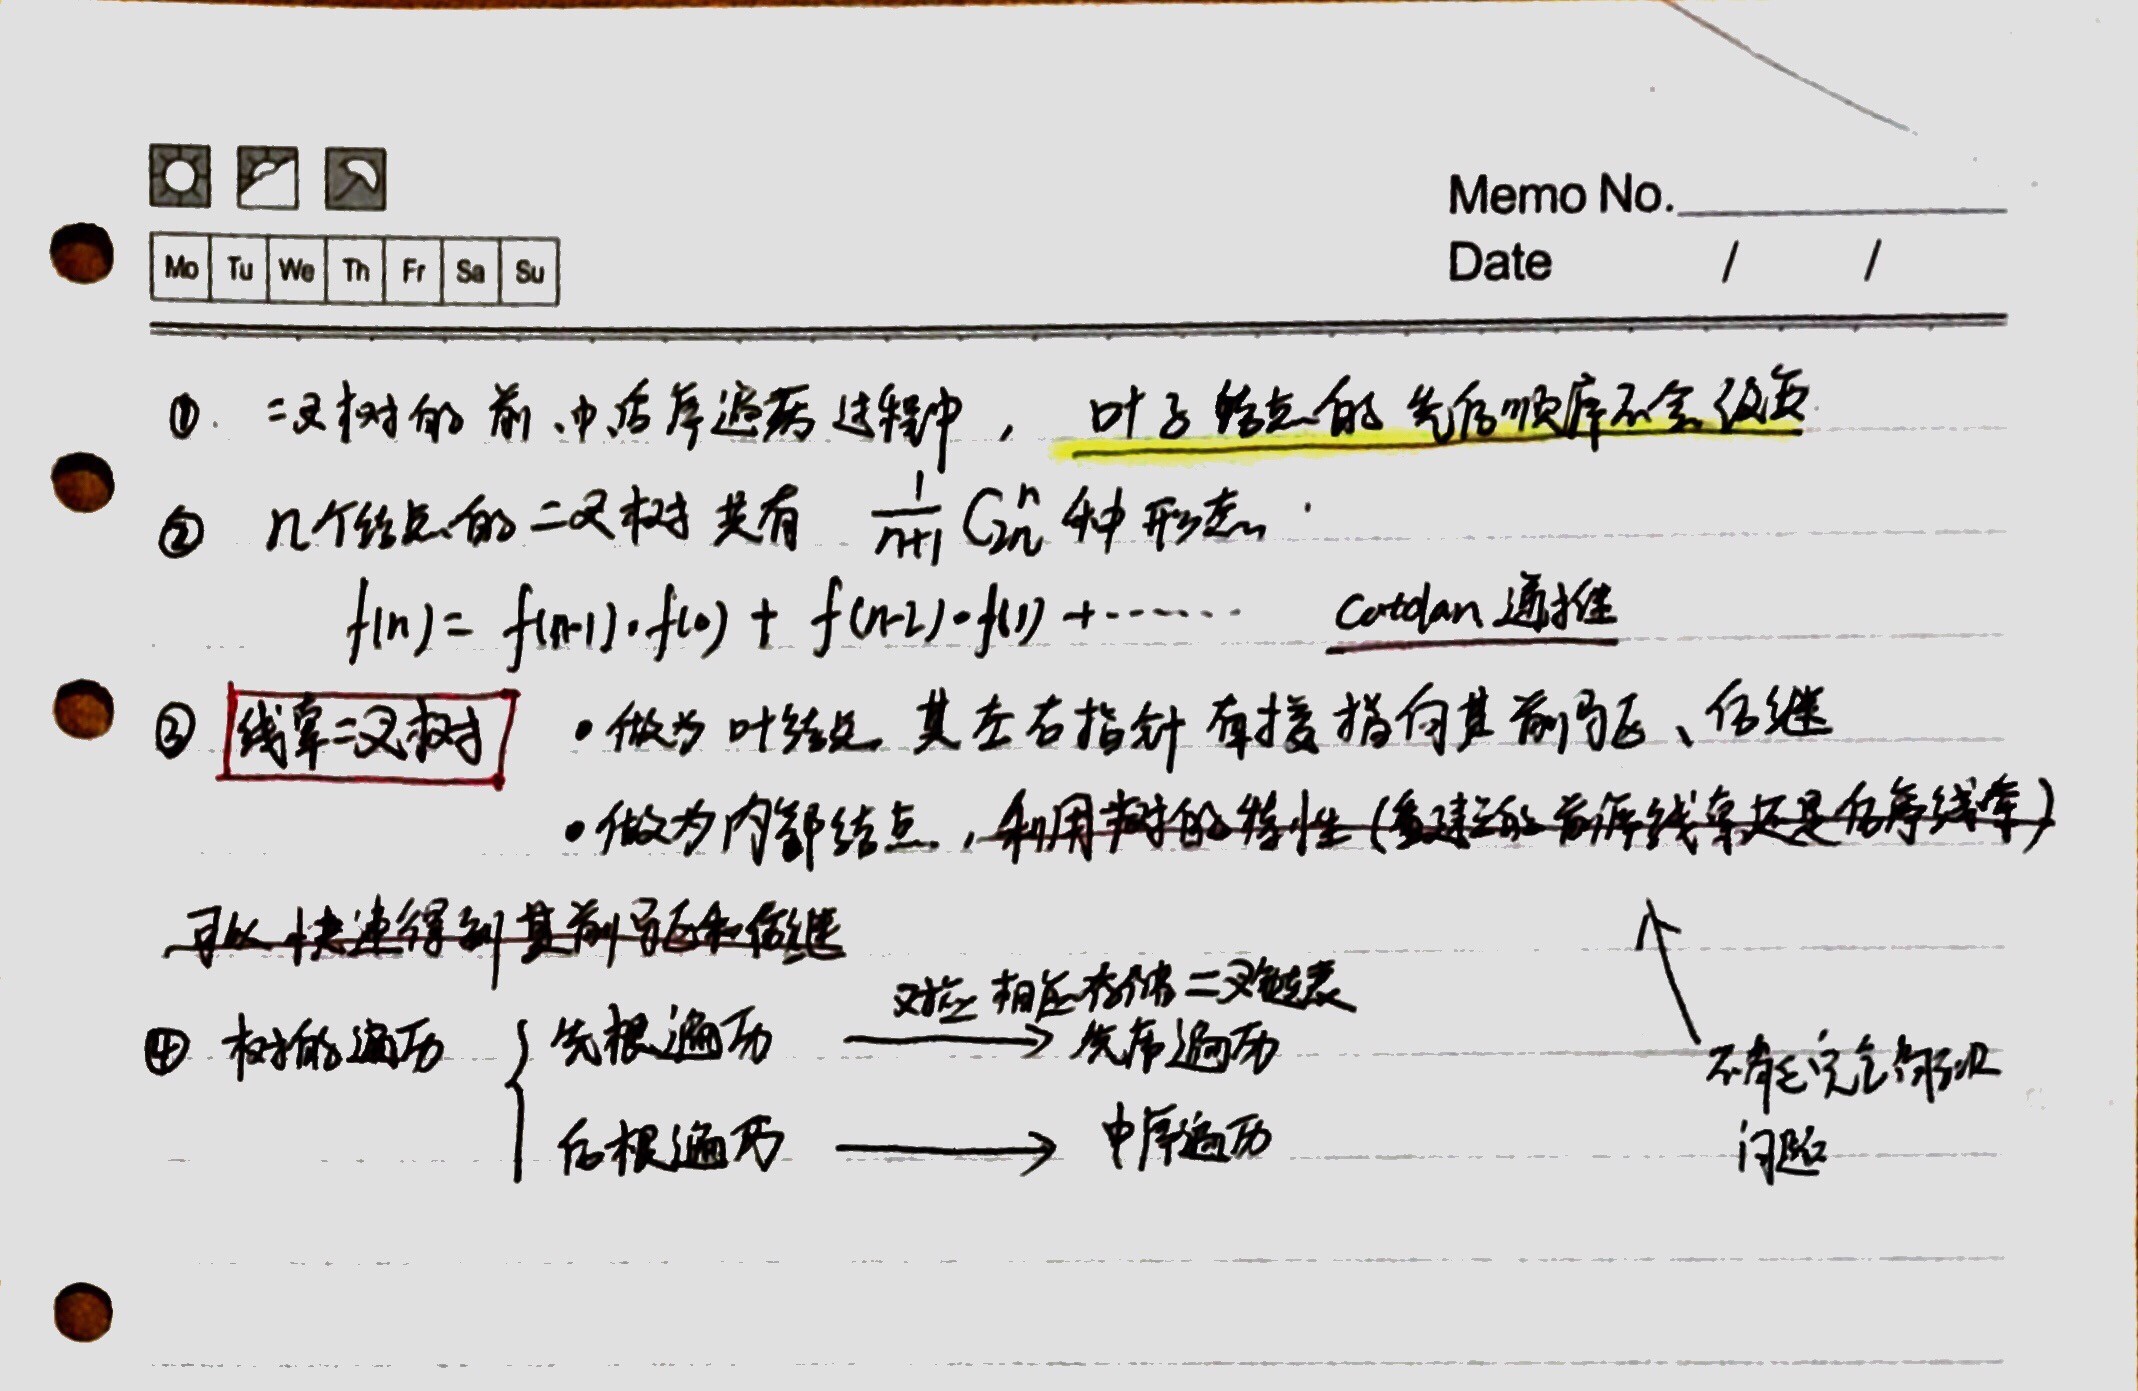 Memo No.
Mo Tu We Th Fr Sa Su
Date / /
① 二叉树的前、中后序遍历过程中, 叶子结点的先后顺序不会改变
② n个结点的二叉树共有 1/(n+1) C_{2n}^{n} 种形态.
f(n) = f(n-1)·f(0) + f(n-2)·f(1) + ······ Catalan 递推
③ 线索二叉树 • 做为叶结点 其左右指针直接指向其前驱、后继
• 做为内部结点, 利用树的特性(看建的前序线索还是后序线索)
可以快速得到其前驱和后继
对应相应存储二叉链表
④ 树的遍历 { 先根遍历 → 先序遍历
不能完全解决
后根遍历 → 中序遍历
问题